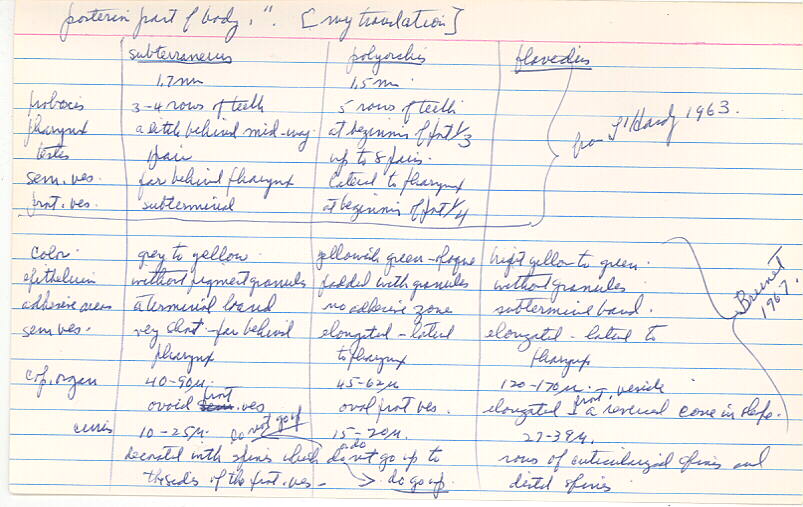 posterior part of body." [my translation]
subterraneus polyorchis flavidus
1.7 mm 1.5 m.
proboscis 3-4 rows of teeth 5 rows of teeth
pharynx a little behind mid-way. at beginnin of pnt 1/3
testes pair up to 8 pairs.
sem. ves. far behind pharynx lateral to pharynx
prot. ves. subterminal at beginnin of pnt 1/4
from L'Hardy 1963.
color. grey to yellow. yellowish green - opaque bright yellow to green.
epithelium without pigment granules padded with granules without granules
adhesive areas a terminal band no adhesive zone subterminal band.
sem ves. very short - far behind elongated - lateral elongated - lateral to
pharynx to pharynx pharynx
cop. organ 40-90µ. 45-62µ 120-170µ. prost. vesicle
ovoid prost. ves oval prost ves. elongated a reversed cone in shape.
cirrus 10-25µ. do not go up 15-20µ. 27-39µ.
decorated with spines which don't go up to rows of cuticularized spines and
the sides of the prot. ves - do go up. distal spines
Brunet 1967.